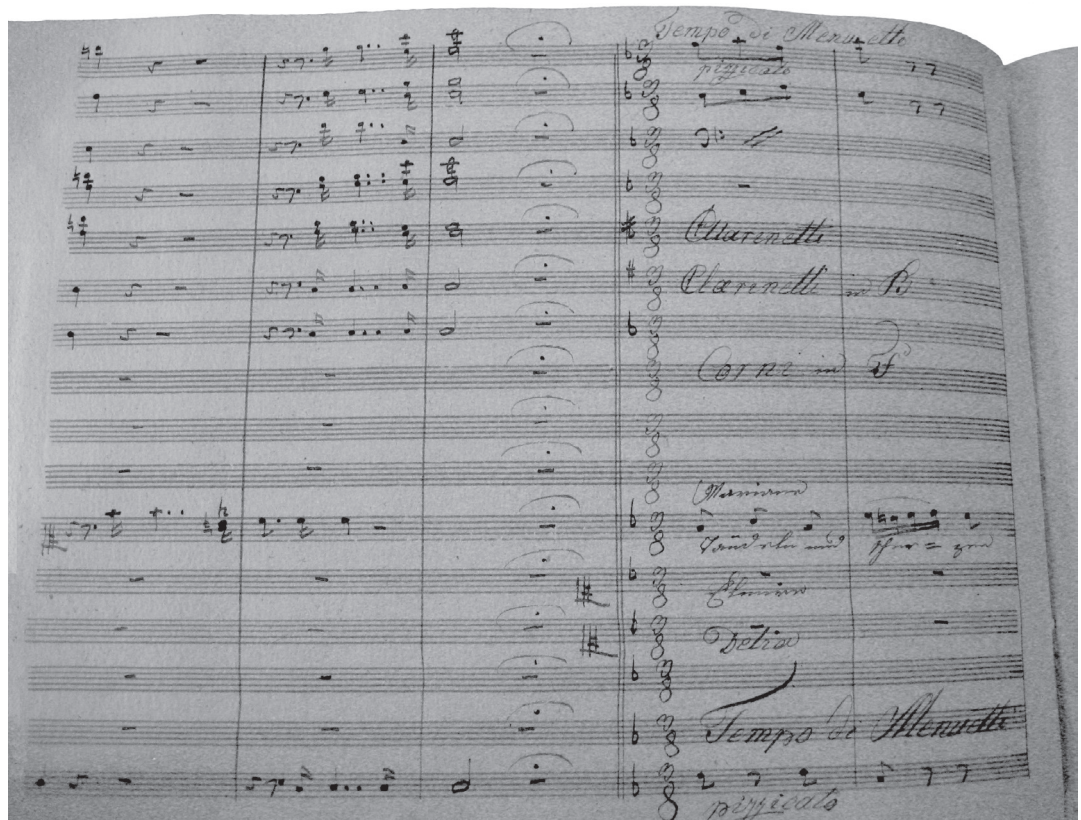 Tempo di Menuetti
pizzicato
Clarinetti
Clarinetti in B
Corni in F
Mariane
Tändeln und scher = zen
Elmire
Delia
Tempo di Menuetti
pizzicato